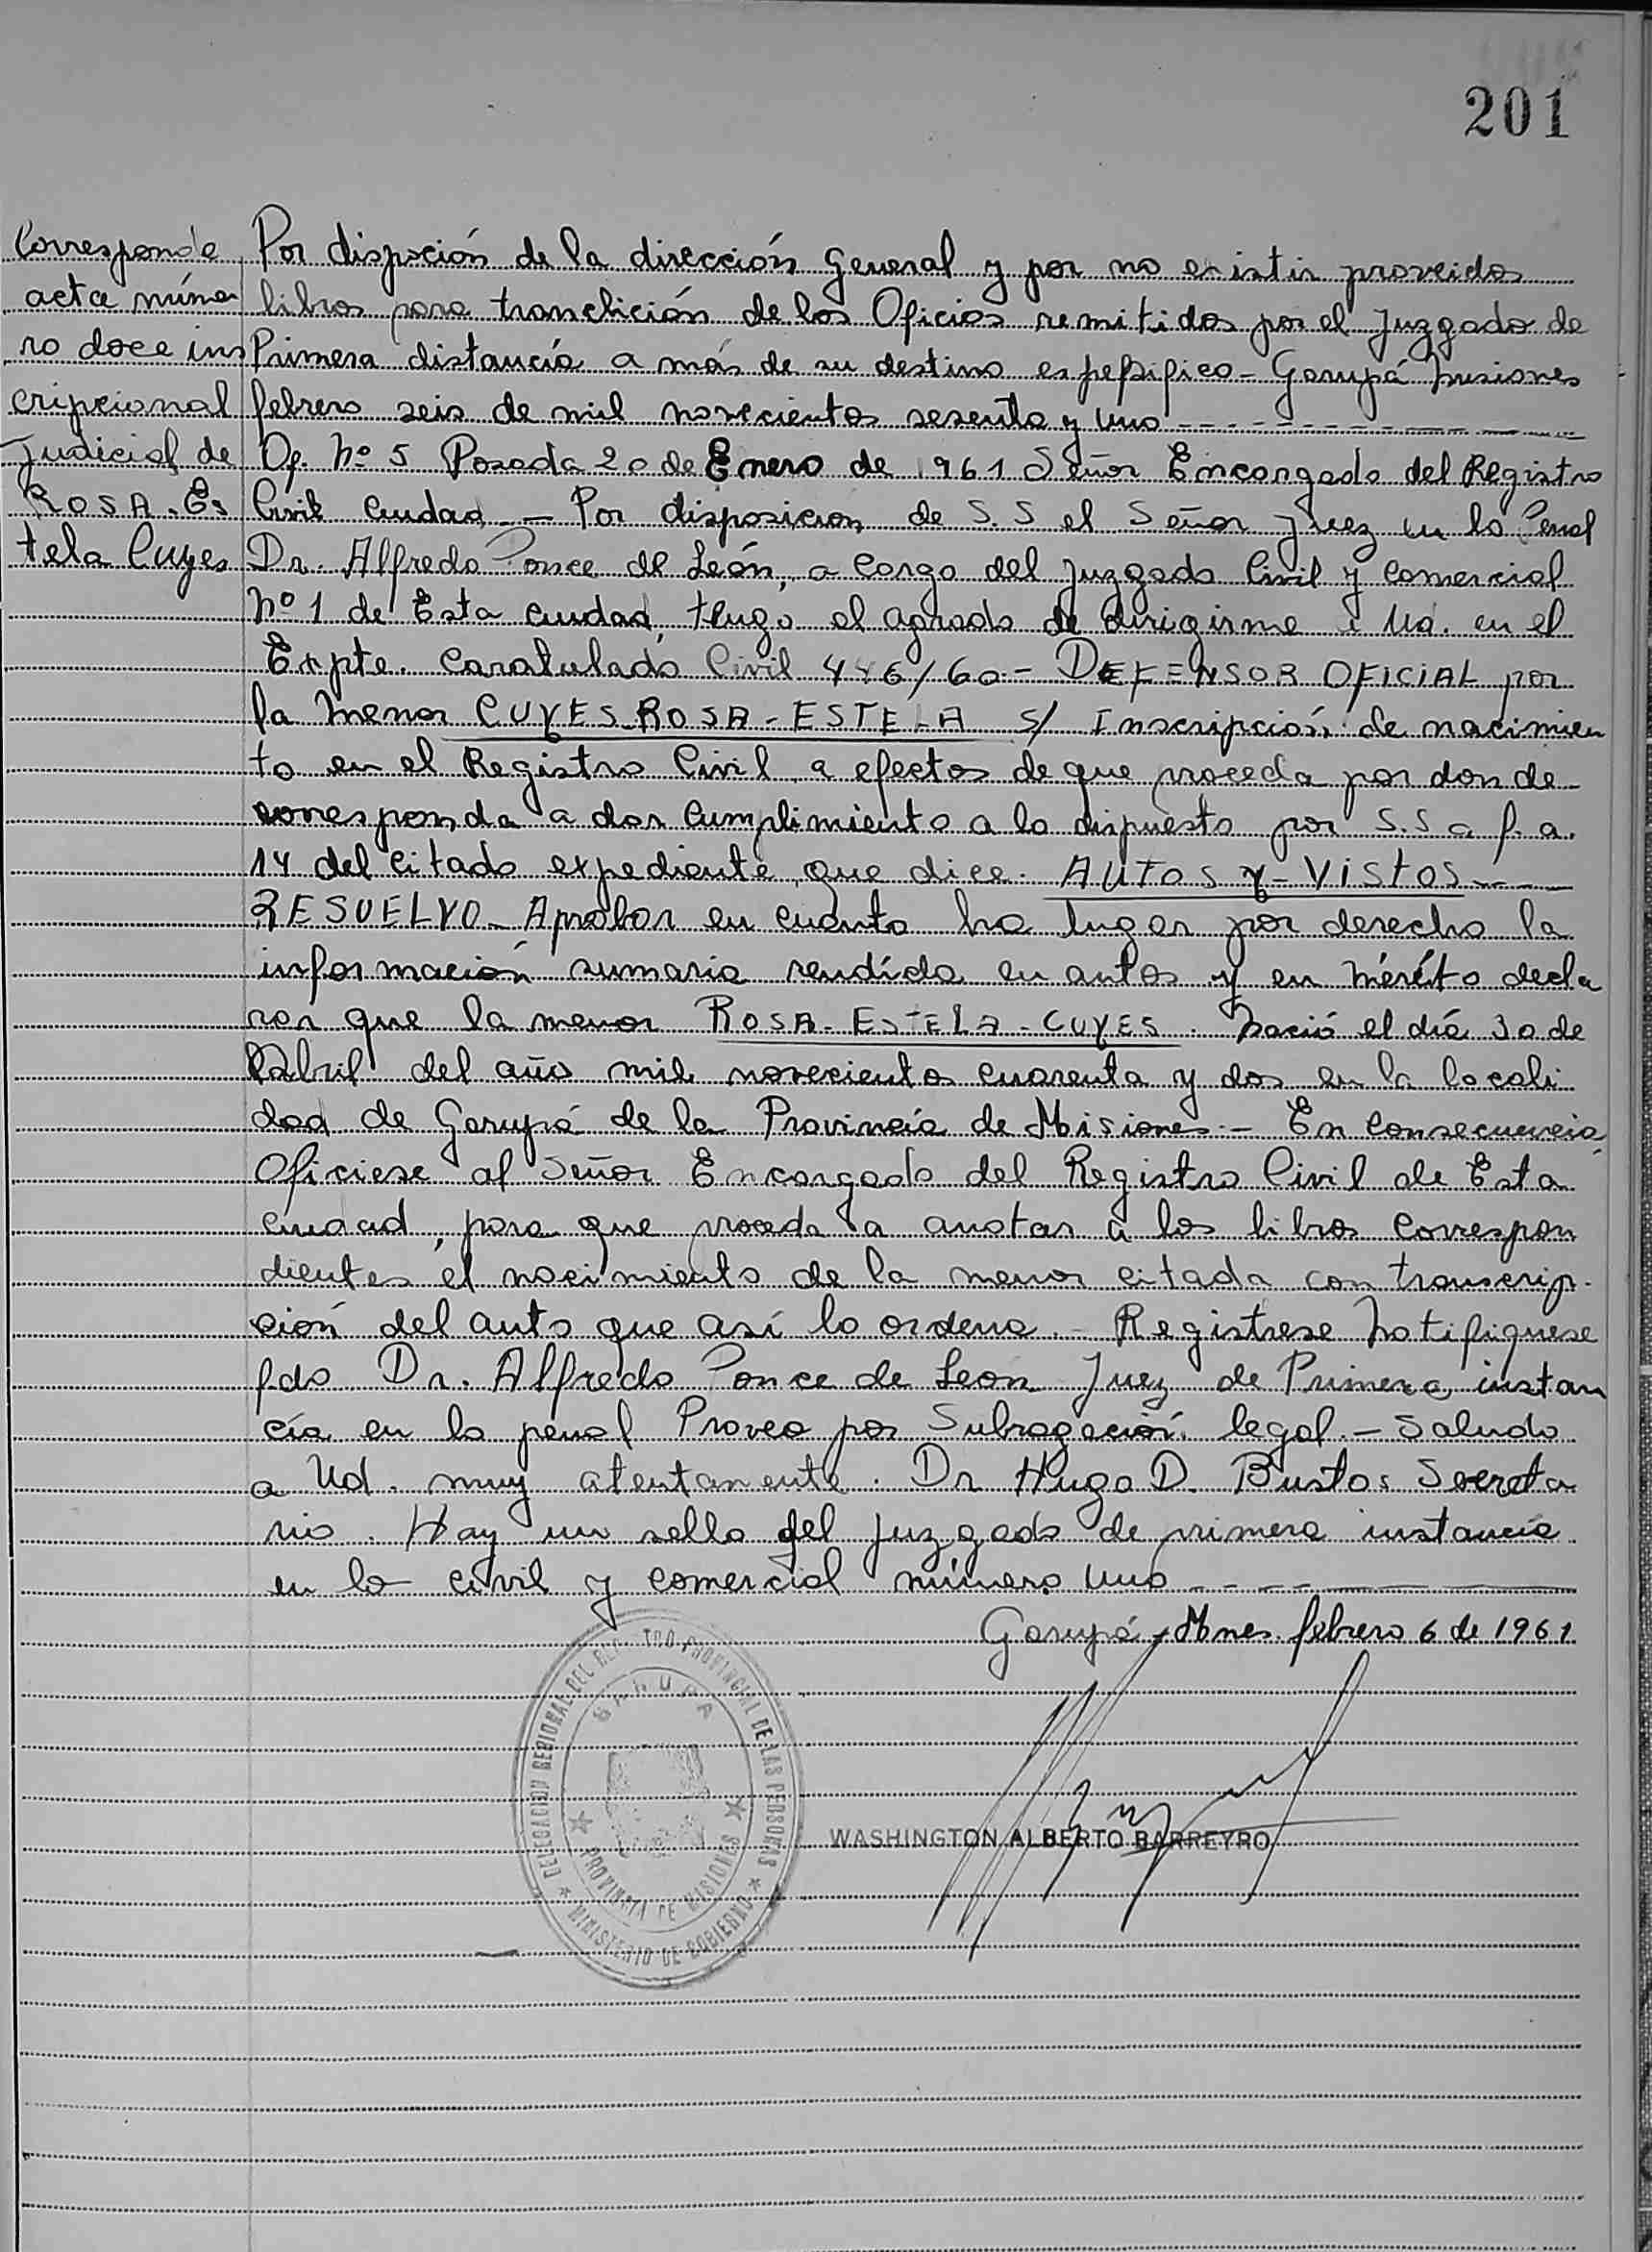 201
Corresponde
acta núme
ro doce ins
cripcional
Judicial de
ROSA. Es
tela Cuyes
Por dispoción de la dirección General y por no existir proveidos
libros para tranclición de los Oficios remitidos por el Juzgado de
Primera distancia a más de su destino espepifico - Garupá Misiones
febrero seis de mil novecientos sesenta y uno
Of. Nº 5 Posada 20 de Enero de 1961 Señor Encargado del Registro
Civil Ciudad - Por disposicion de S.S el Señor Juez en lo Penal
Dr. Alfredo Ponce de León, a cargo del Juzgado Civil y Comercial
Nº 1 de Esta Ciudad, tengo el agrado de dirigirme a Ud. en el
Expte. Caratulado Civil 446/60 - DEFENSOR OFICIAL por
la menor CUYES ROSA - ESTELA s/ Inscripción de nacimien
to en el Registro Civil a efectos de que proceda por donde
corresponda a dar Cumplimiento a lo dispuesto por S.S a f. a.
14 del citado expediente, que dice. AUTOS y - VISTOS
RESUELVO - Aprobar en cuanto ha lugar por derecho la
información sumaria rendida en autos y en mérito decla
rar que la menor ROSA - ESTELA - CUYES. Nació el día 30 de
Abril del año mil novecientos cuarenta y dos en la locali
dad de Garupá de la Provincia de Misiones - En Consecuencia
Oficiese al Señor Encargado del Registro Civil de Esta
ciudad, para que proceda a anotar a los libros Correspon
dientes el nacimiento de la menor citada con transcrip-
ción del auto que así lo ordena. - Registrese Notifiquese
fdo Dr. Alfredo Ponce de Leon Juez de Primera instan
cia en lo penal Proveo por Subrogación legal. - Saludo
a Ud. muy atentamente. Dr Hugo D. Bustos Secreta
rio. Hay un sello del Juzgado de primera instancia
en lo civil y comercial número uno
Garupá - Mnes. febrero 6 de 1961
DELEGACION REGIONAL DEL REGISTRO PROVINCIAL DE LAS PERSONAS
GARUPA
PROVINCIA DE MISIONES
MINISTERIO DE GOBIERNO
WASHINGTON ALBERTO BARREYRO